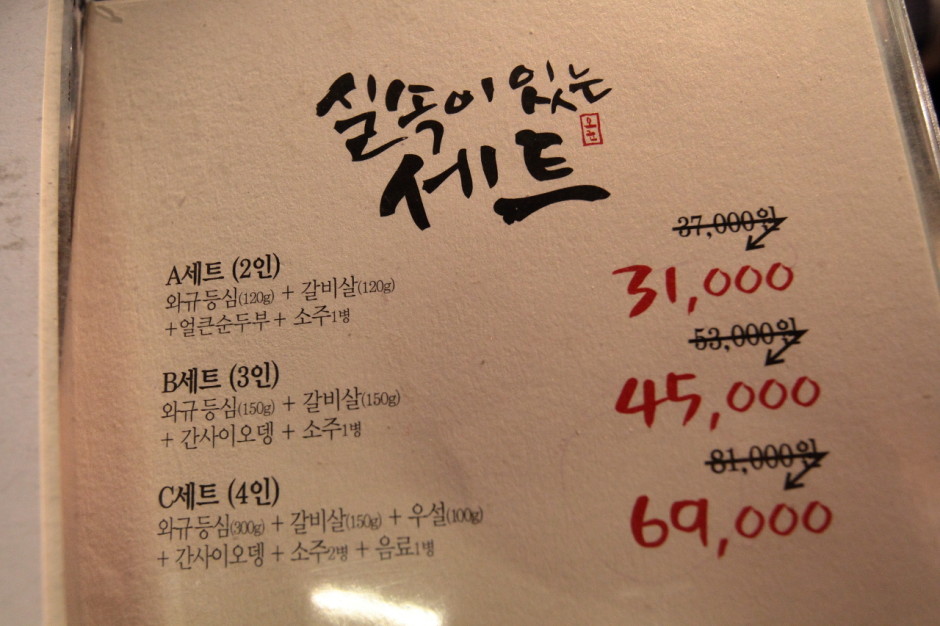 실속이 있는
세트
오천
A세트 (2인)
와규등심(120g) + 갈비살(120g)
+얼큰순두부 + 소주1병
37,000원
31,000
B세트 (3인)
와규등심(150g) + 갈비살(150g)
+ 간사이오뎅 + 소주1병
53,000원
45,000
C세트 (4인)
와규등심(300g) + 갈비살(150g) + 우설(100g)
+ 간사이오뎅 + 소주2병 + 음료1병
81,000원
69,000